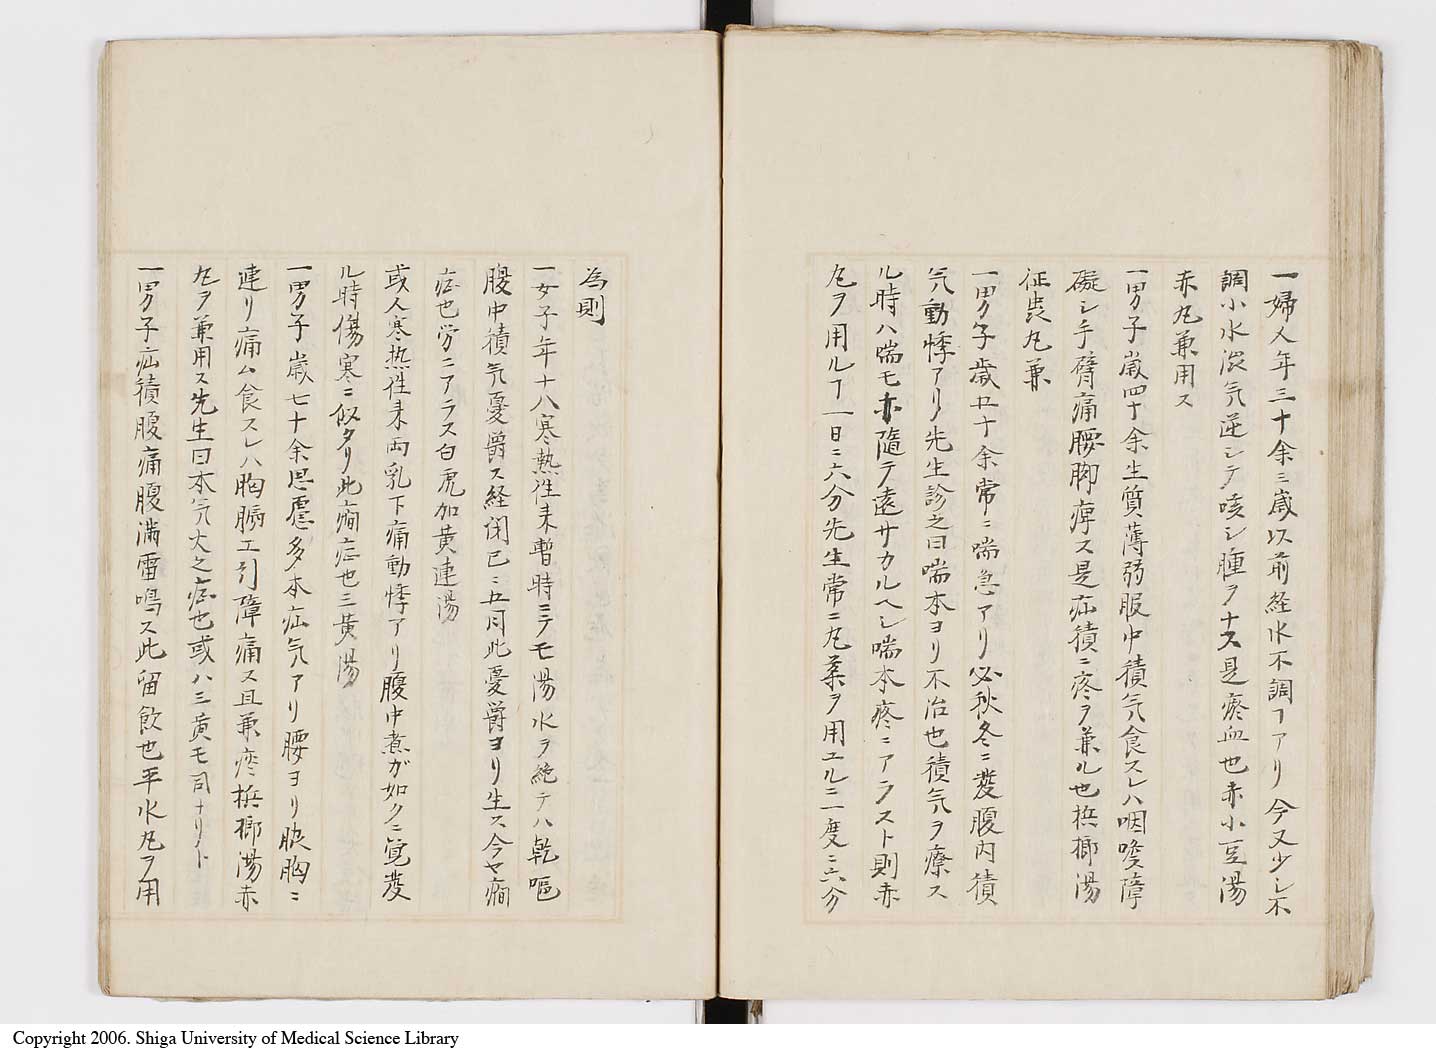 一婦人年三十余三歳以前経水不調ヿアリ今又少シ不
調小水渋気逆シテ咳シ腫ヲナス是瘀血也赤小豆湯
赤丸兼用ス
一男子歳四十余生質薄弱腹中積気食スレハ咽喉障
礙シ手臂痛腰脚痺ス是疝積ニ疼ヲ兼ル也梹榔湯
征虫丸兼
一男子歳五十余常ニ喘急アリ必秋冬ニ発腹内積
気動悸アリ先生診之曰喘本ヨリ不治也積気ヲ療ス
ル時ハ喘モ亦随テ遠サカルヘシ喘本疼ニアラスト則赤
丸ヲ用ルヿ一日ニ六分先生常ニ丸薬ヲ用ユル二一度ニ六分
為則
一女子年十八寒熱往来暫時ニテモ湯水ヲ絶テハ乾嘔
腹中積気憂爵ス経閉已ニ五月此憂爵ヨリ生ス今ヤ癇
症也労ニアラス白虎加黄連湯
或人寒热往来両乳下痛動悸アリ腹中煮ガ如クニ覚発
ル時傷寒ニ似タリ此癇症也三黄湯
一男子歳七十余思慮多本疝気アリ腰ヨリ脇胸ニ
連リ痛ム食スレハ胸膈エ引障痛ス且兼疼梹榔湯赤
丸ヲ兼用ス先生曰本気火之症也或ハ三黄モ同ナリト
一男子疝積腹痛腹満雷鳴ス此留飲也平水丸ヲ用
Copyright 2006. Shiga University of Medical Science Library